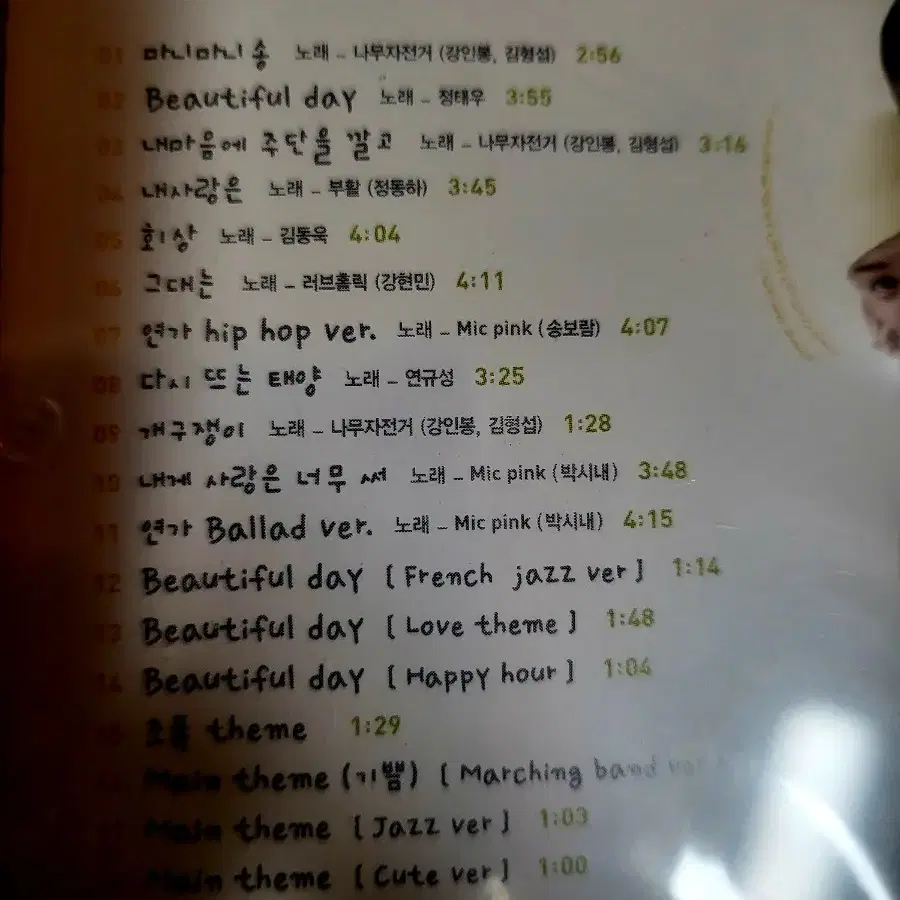 01 마니마니 송 노래 – 나무자전거 (강인봉, 김형섭) 2:56
02 Beautiful day 노래 – 정태우 3:55
03 내마음에 주단을 깔고 노래 – 나무자전거 (강인봉, 김형섭) 3:16
04 내사랑은 노래 – 부활 (정동하) 3:45
05 회상 노래 – 김동욱 4:04
06 그대는 노래 – 러브홀릭 (강현민) 4:11
07 연가 hip hop ver. 노래 – Mic pink (송보람) 4:07
08 다시 뜨는 태양 노래 – 연규성 3:25
09 개구쟁이 노래 – 나무자전거 (강인봉, 김형섭) 1:28
10 내게 사랑은 너무 써 노래 – Mic pink (박시내) 3:48
11 연가 Ballad ver. 노래 – Mic pink (박시내) 4:15
12 Beautiful day [ French jazz ver ] 1:14
13 Beautiful day [ Love theme ] 1:48
14 Beautiful day [ Happy hour ] 1:04
15 theme 1:29
Main theme (기쁨) [ Marching band
Main theme [ Jazz ver ] 1:03
Main theme [ Cute ver ] 1:00